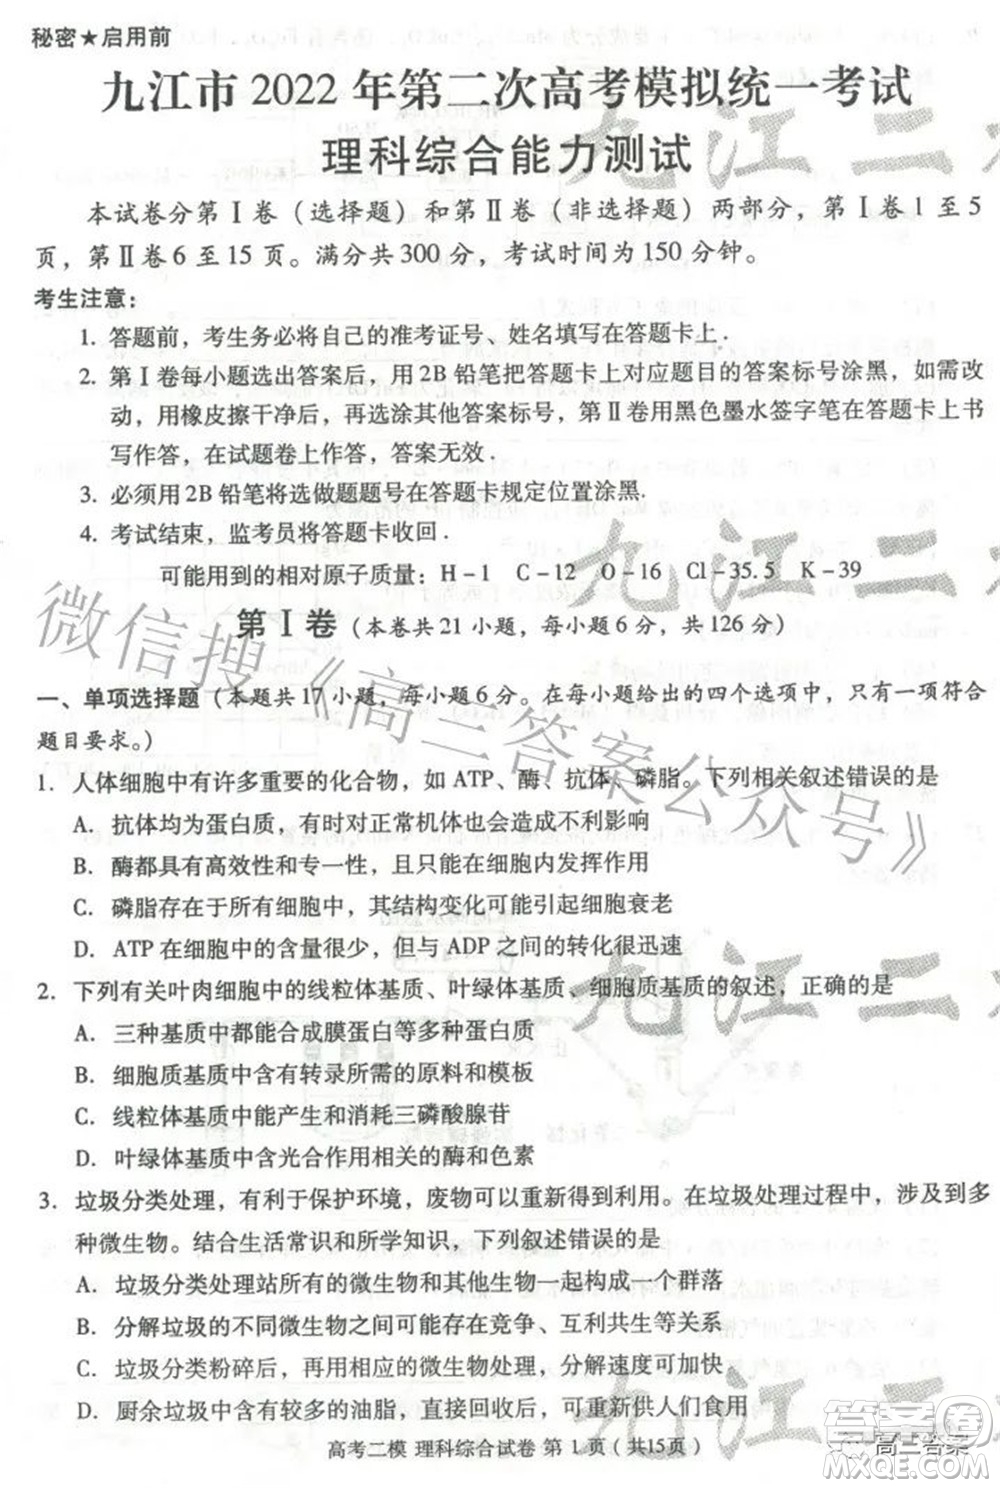 秘密★启用前
九江市 2022 年第二次高考模拟统一考试
理科综合能力测试
本试卷分第Ⅰ卷（选择题）和第Ⅱ卷（非选择题）两部分，第Ⅰ卷 1 至 5
页，第Ⅱ卷 6 至 15 页。满分共 300 分，考试时间为 150 分钟。
考生注意：
1. 答题前，考生务必将自己的准考证号，姓名填写在答题卡上．
2. 第Ⅰ卷每小题选出答案后，用 2B 铅笔把答题卡上对应题目的答案标号涂黑，如需改
动，用橡皮擦干净后，再选涂其他答案标号，第Ⅱ卷用黑色墨水签字笔在答题卡上书
写作答，在试题卷上作答，答案无效．
3. 必须用 2B 铅笔将选做题题号在答题卡规定位置涂黑．
4. 考试结束，监考员将答题卡收回．
可能用到的相对原子质量：H－1 C－12 O－16 Cl－35.5 K－39
第Ⅰ卷（本卷共 21 小题，每小题 6 分，共 126 分）
一、单项选择题（本题共 17 小题，每小题 6 分。在每小题给出的四个选项中，只有一项符合
题目要求。）
1．人体细胞中有许多重要的化合物，如 ATP、酶、抗体、磷脂。下列相关叙述错误的是
A．抗体均为蛋白质，有时对正常机体也会造成不利影响
B．酶都具有高效性和专一性，且只能在细胞内发挥作用
C．磷脂存在于所有细胞中，其结构变化可能引起细胞衰老
D．ATP 在细胞中的含量很少，但与 ADP 之间的转化非常迅速
2．下列有关叶肉细胞中的线粒体基质、叶绿体基质、细胞质基质的叙述，正确的是
A．三种基质中都能合成膜蛋白等多种蛋白质
B．细胞质基质中含有转录所需的原料和模板
C．线粒体基质中能产生和消耗三磷酸腺苷
D．叶绿体基质中含光合作用所需的酶和色素
3．垃圾分类处理，有利于保护环境，废物可以重新得到利用。在垃圾处理过程中，涉及到多
种微生物。结合生活常识和所学知识，下列叙述错误的是
A．垃圾分类处理站所有的微生物和其他生物一起构成一个群落
B．分解垃圾的不同微生物之间可能存在竞争、互利共生等关系
C．垃圾分类粉碎后，再用相应的微生物处理，分解速度可加快
D．厨余垃圾中含有较多的油脂，直接回收后，可重新供人们食用
高考二模 理科综合试卷 第 1 页（ 共15页 ）
九江二
九江二
九江二
九江二
微信搜《高三答案公众号》
答案圈
高三答案
MXQE.COM